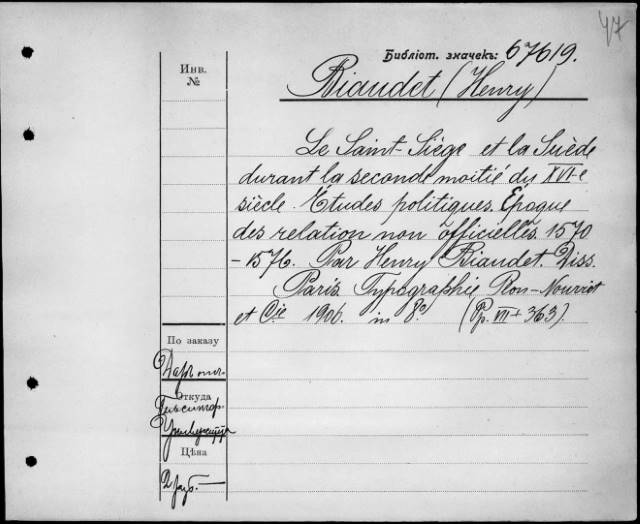 47
Библіот. значекъ: 67619.
Инв.
№
Biaudet (Henry)
Le Saint-Siège et la Suède
durant la seconde moitié du XVI-e
siècle. Études politiques. Époque
des relation non officielles 1570
-1576. Par Henry Biaudet. Diss.
Paris. Typographie Plon-Nourrit
et Cie 1906. in 8º (Pp. VII + 363).
По заказу
Даръ отъ
Откуда
Гельсингфор.
Университета
Цѣна
2 руб. —